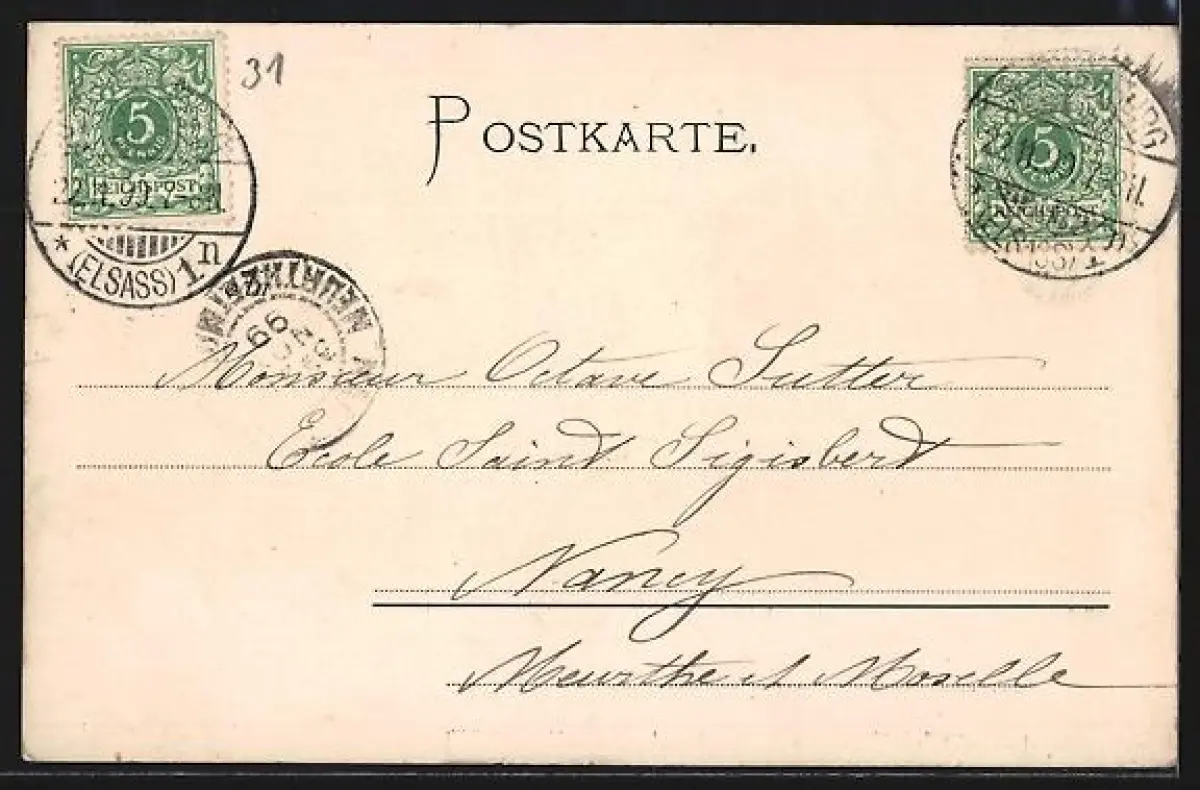 31
POSTKARTE.
5
REICHSPOST
22. 99. 7-8N.
* (ELSASS) 1n
5
REICHSPOST
MEURTHE
99
Monsieur Octave Sutter
Ecole Saint Sigisbert
Nancy
Meurthe et Moselle